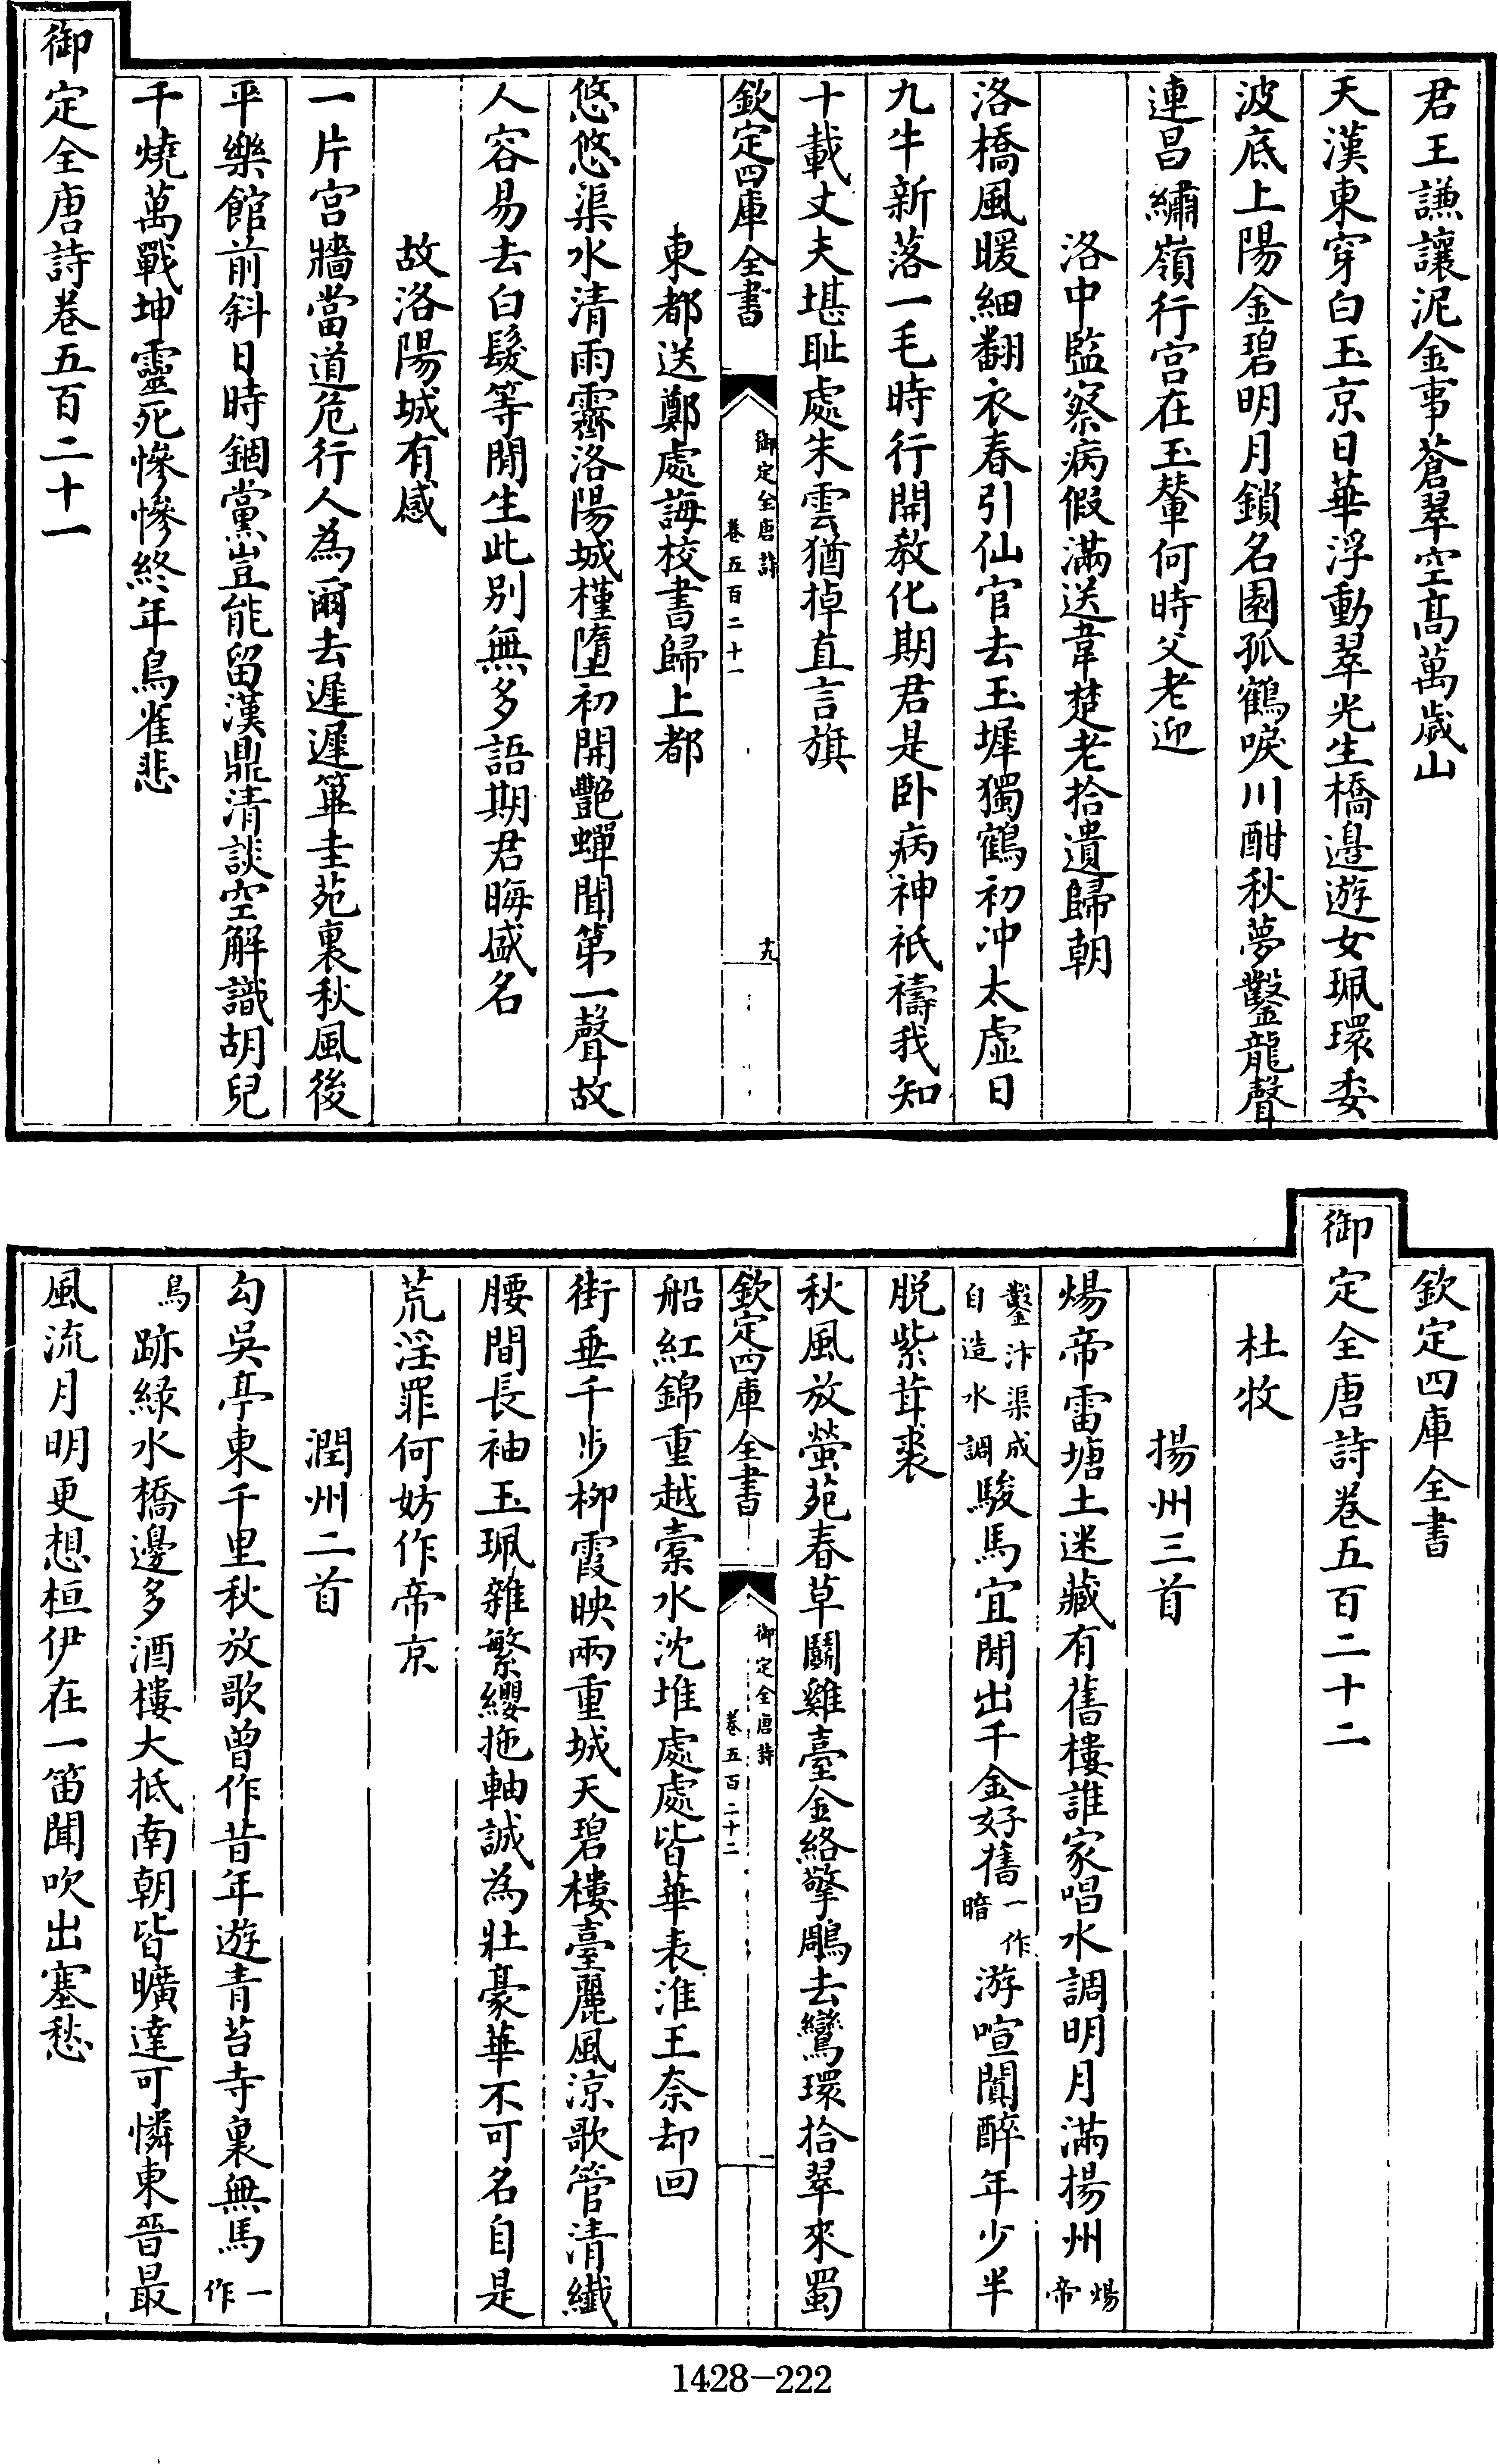 君王謙讓泥金事蒼翠空高萬歲山
天漢東穿白玉京日華浮動翠光生橋邊遊女珮環委
波底上陽金碧明月鎖名園孤鶴唳川酣秋夢鑿龍聲
連昌繡嶺行宫在玉輦何時父老迎
洛中監察病假滿送韋楚老拾遺歸朝
洛橋風暖細翻衣春引仙官去玉墀獨鶴初冲太虛日
九牛新落一毛時行開教化期君是卧病神祇禱我知
十載丈夫堪耻處朱雲猶掉直言旗
欽定四庫全書
御定全唐詩
卷五百二十一
十九
東都送鄭處誨校書歸上都
悠悠渠水清雨霽洛陽城槿墮初開艷蟬聞第一聲故
人容易去白髮等閒生此别無多語期君晦盛名
故洛陽城有感
一片宫牆當道危行人為爾去遲遲篳圭苑裏秋風後
平樂館前斜日時錮黨豈能留漢鼎清談空解識胡兒
千燒萬戰坤靈死慘慘終年鳥雀悲
御定全唐詩卷五百二十一
欽定四庫全書
御定全唐詩卷五百二十二
杜牧
揚州三首
煬帝雷塘土迷藏有舊樓誰家唱水調明月滿揚州煬帝
鑿汴渠成自造水調駿馬宜閒出千金好舊一作暗游喧闐醉年少半
脱紫茸裘
秋風放螢苑春草鬬雞臺金絡擎鵰去鸞環拾翠來蜀
欽定四庫全書
御定全唐詩
卷五百二十二
一
船紅錦重越橐水沈堆處處皆華表淮王奈却回
街垂千步柳霞映兩重城天碧樓臺麗風凉歌管清纖
腰間長袖玉珮雜繁纓拖軸誠為壯豪華不可名自是
荒淫罪何妨作帝京
潤州二首
勾吳亭東千里秋放歌曾作昔年遊青苔寺裏無馬一作
鳥跡緑水橋邊多酒樓大抵南朝皆曠達可憐東晉最
風流月明更想桓伊在一笛聞吹出塞愁
1428-222